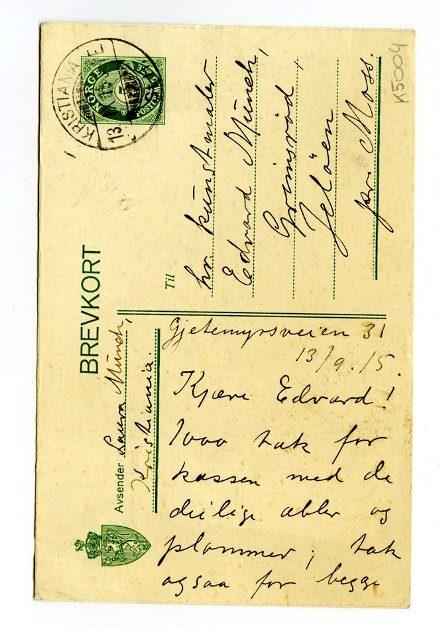 K5004
KRISTIANIA
13
NORGE
5
BREVKORT
Til
hr. kunstmaler
Edvard Munch,
Grimsrød,
Jeløen
pr. Moss.
Avsender Laura Munch,
Kristiania.
Gjetemyrsveien 31
13/9. 15.
Kjære Edvard!
1000 tak for
kassen med de
deilige æbler og
plommer; tak
ogsaa for begge